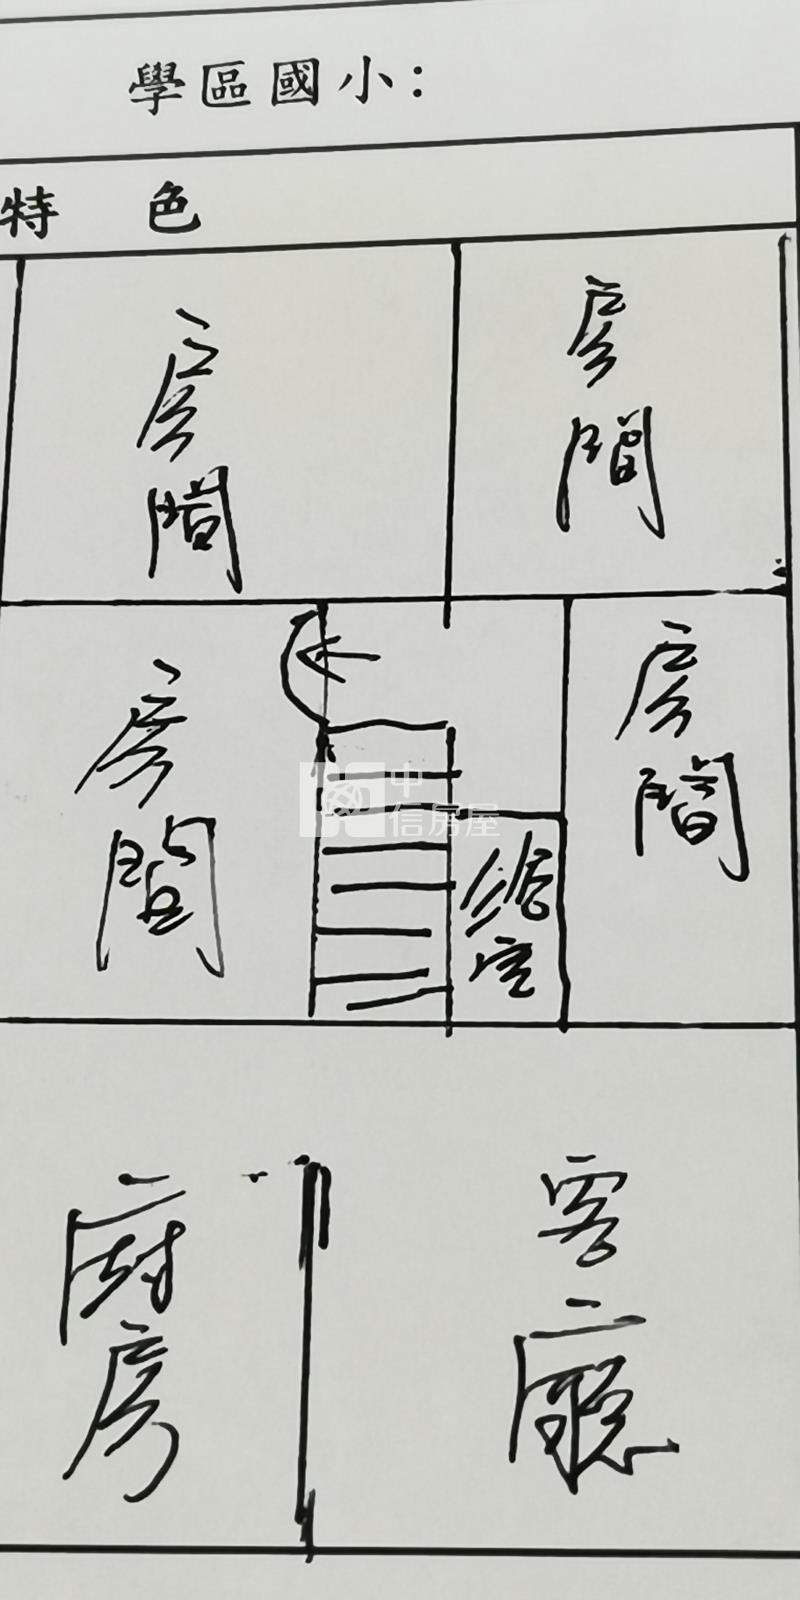 學區國小：
特色
房間
房間
房間
房間
中信房屋
廚房
客廳